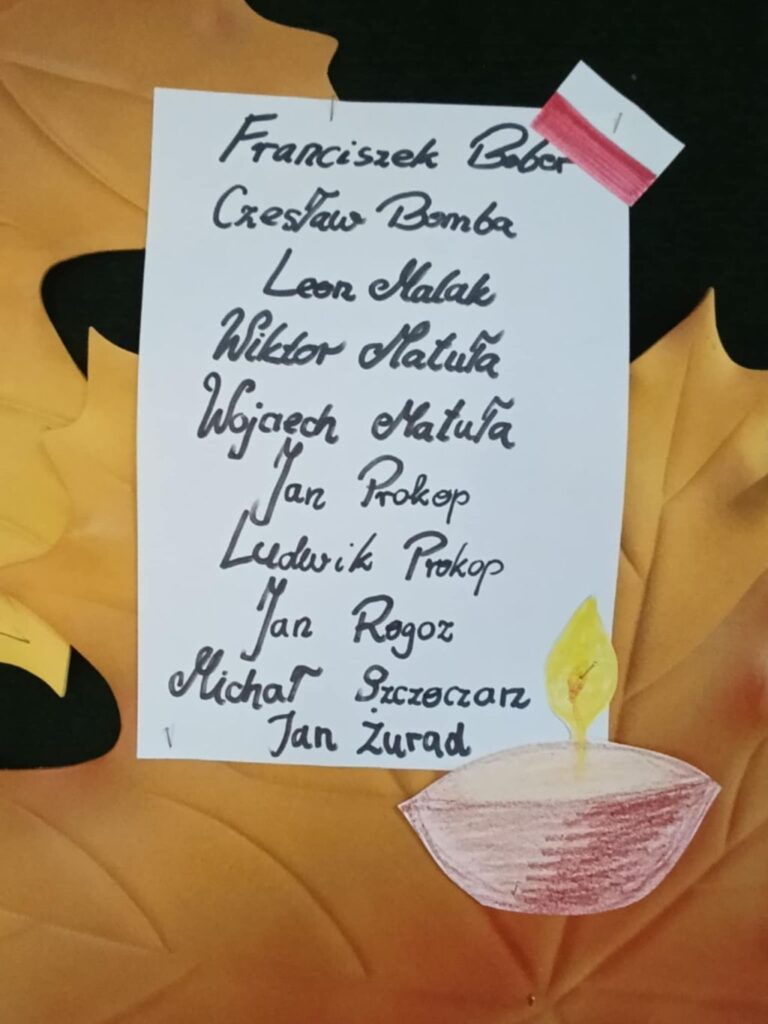 Franciszek Bober
Czesław Bomba
Leon Malak
Wiktor Matuła
Wojciech Matuła
Jan Prokop
Ludwik Prokop
Jan Rogoz
Michał
Jan Żurad